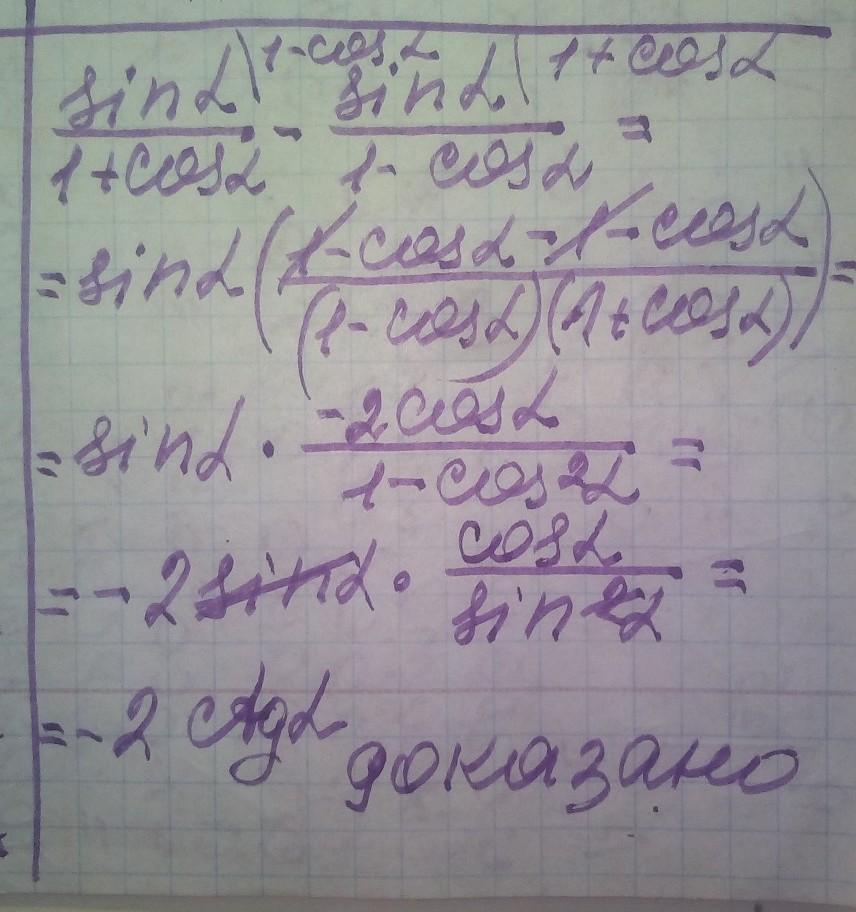 sinα\1-cosα / 1+cosα - sinα\1+cosα / 1-cosα =
= sinα (1-cosα-1-cosα / (1-cosα)(1+cosα)) =
= sinα · -2cosα / 1-cos²α =
= -2sinα · cosα / sin²α =
= -2 ctgα доказано